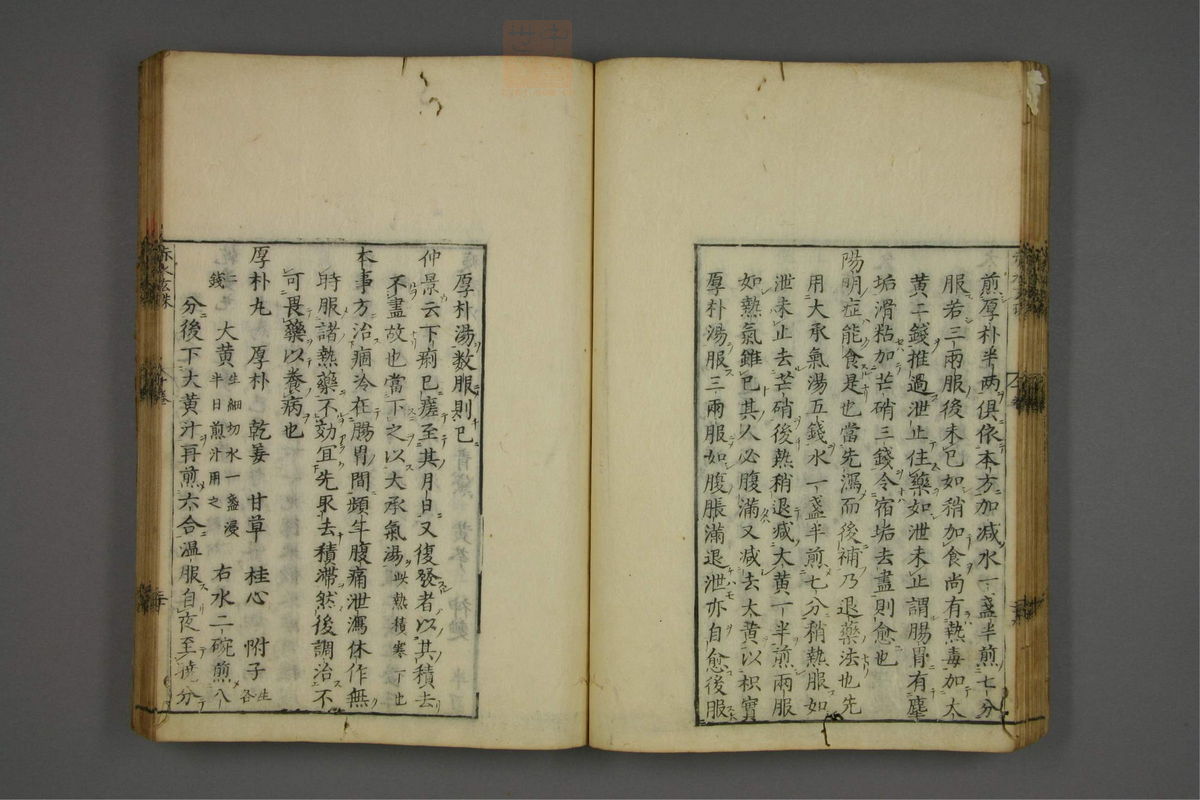 煎厚朴半兩俱依本方加減水一盞半煎七分
服若三兩服後未已如稍加食尚有熱毒加大
黃二錢推過泄止住藥如泄未止謂腸胃有塵
垢滑粘加芒硝三錢令宿垢去盡則愈也
陽明症能食是也當先瀉而後補乃退藥法也先
用大承氣湯五錢水一盞半煎七分稍熱服如
泄未止去芒硝後熱稍退減大黃一半煎兩服
如熱氣雖已其人必腹滿又減去大黃以枳實
厚朴湯服三兩服如腹脹滿退泄亦自愈後服
厚朴湯数服則已
仲景云下痢已瘥至其月日又復發者以其積去
不盡故也當下之以大承氣湯此熱積寒丁也
本事方治痼冷在腸胃間頻年腹痛泄瀉休作無
時服諸熱藥不効宜先取去積滯然後調治不
可畏藥以養病也
厚朴丸 厚朴 乾姜 甘草 桂心 附子生各
錢 大黃生細切水一盞浸半日煎汁用之 右水二碗煎八
分後下大黃汁再煎六合温服自夜至曉分